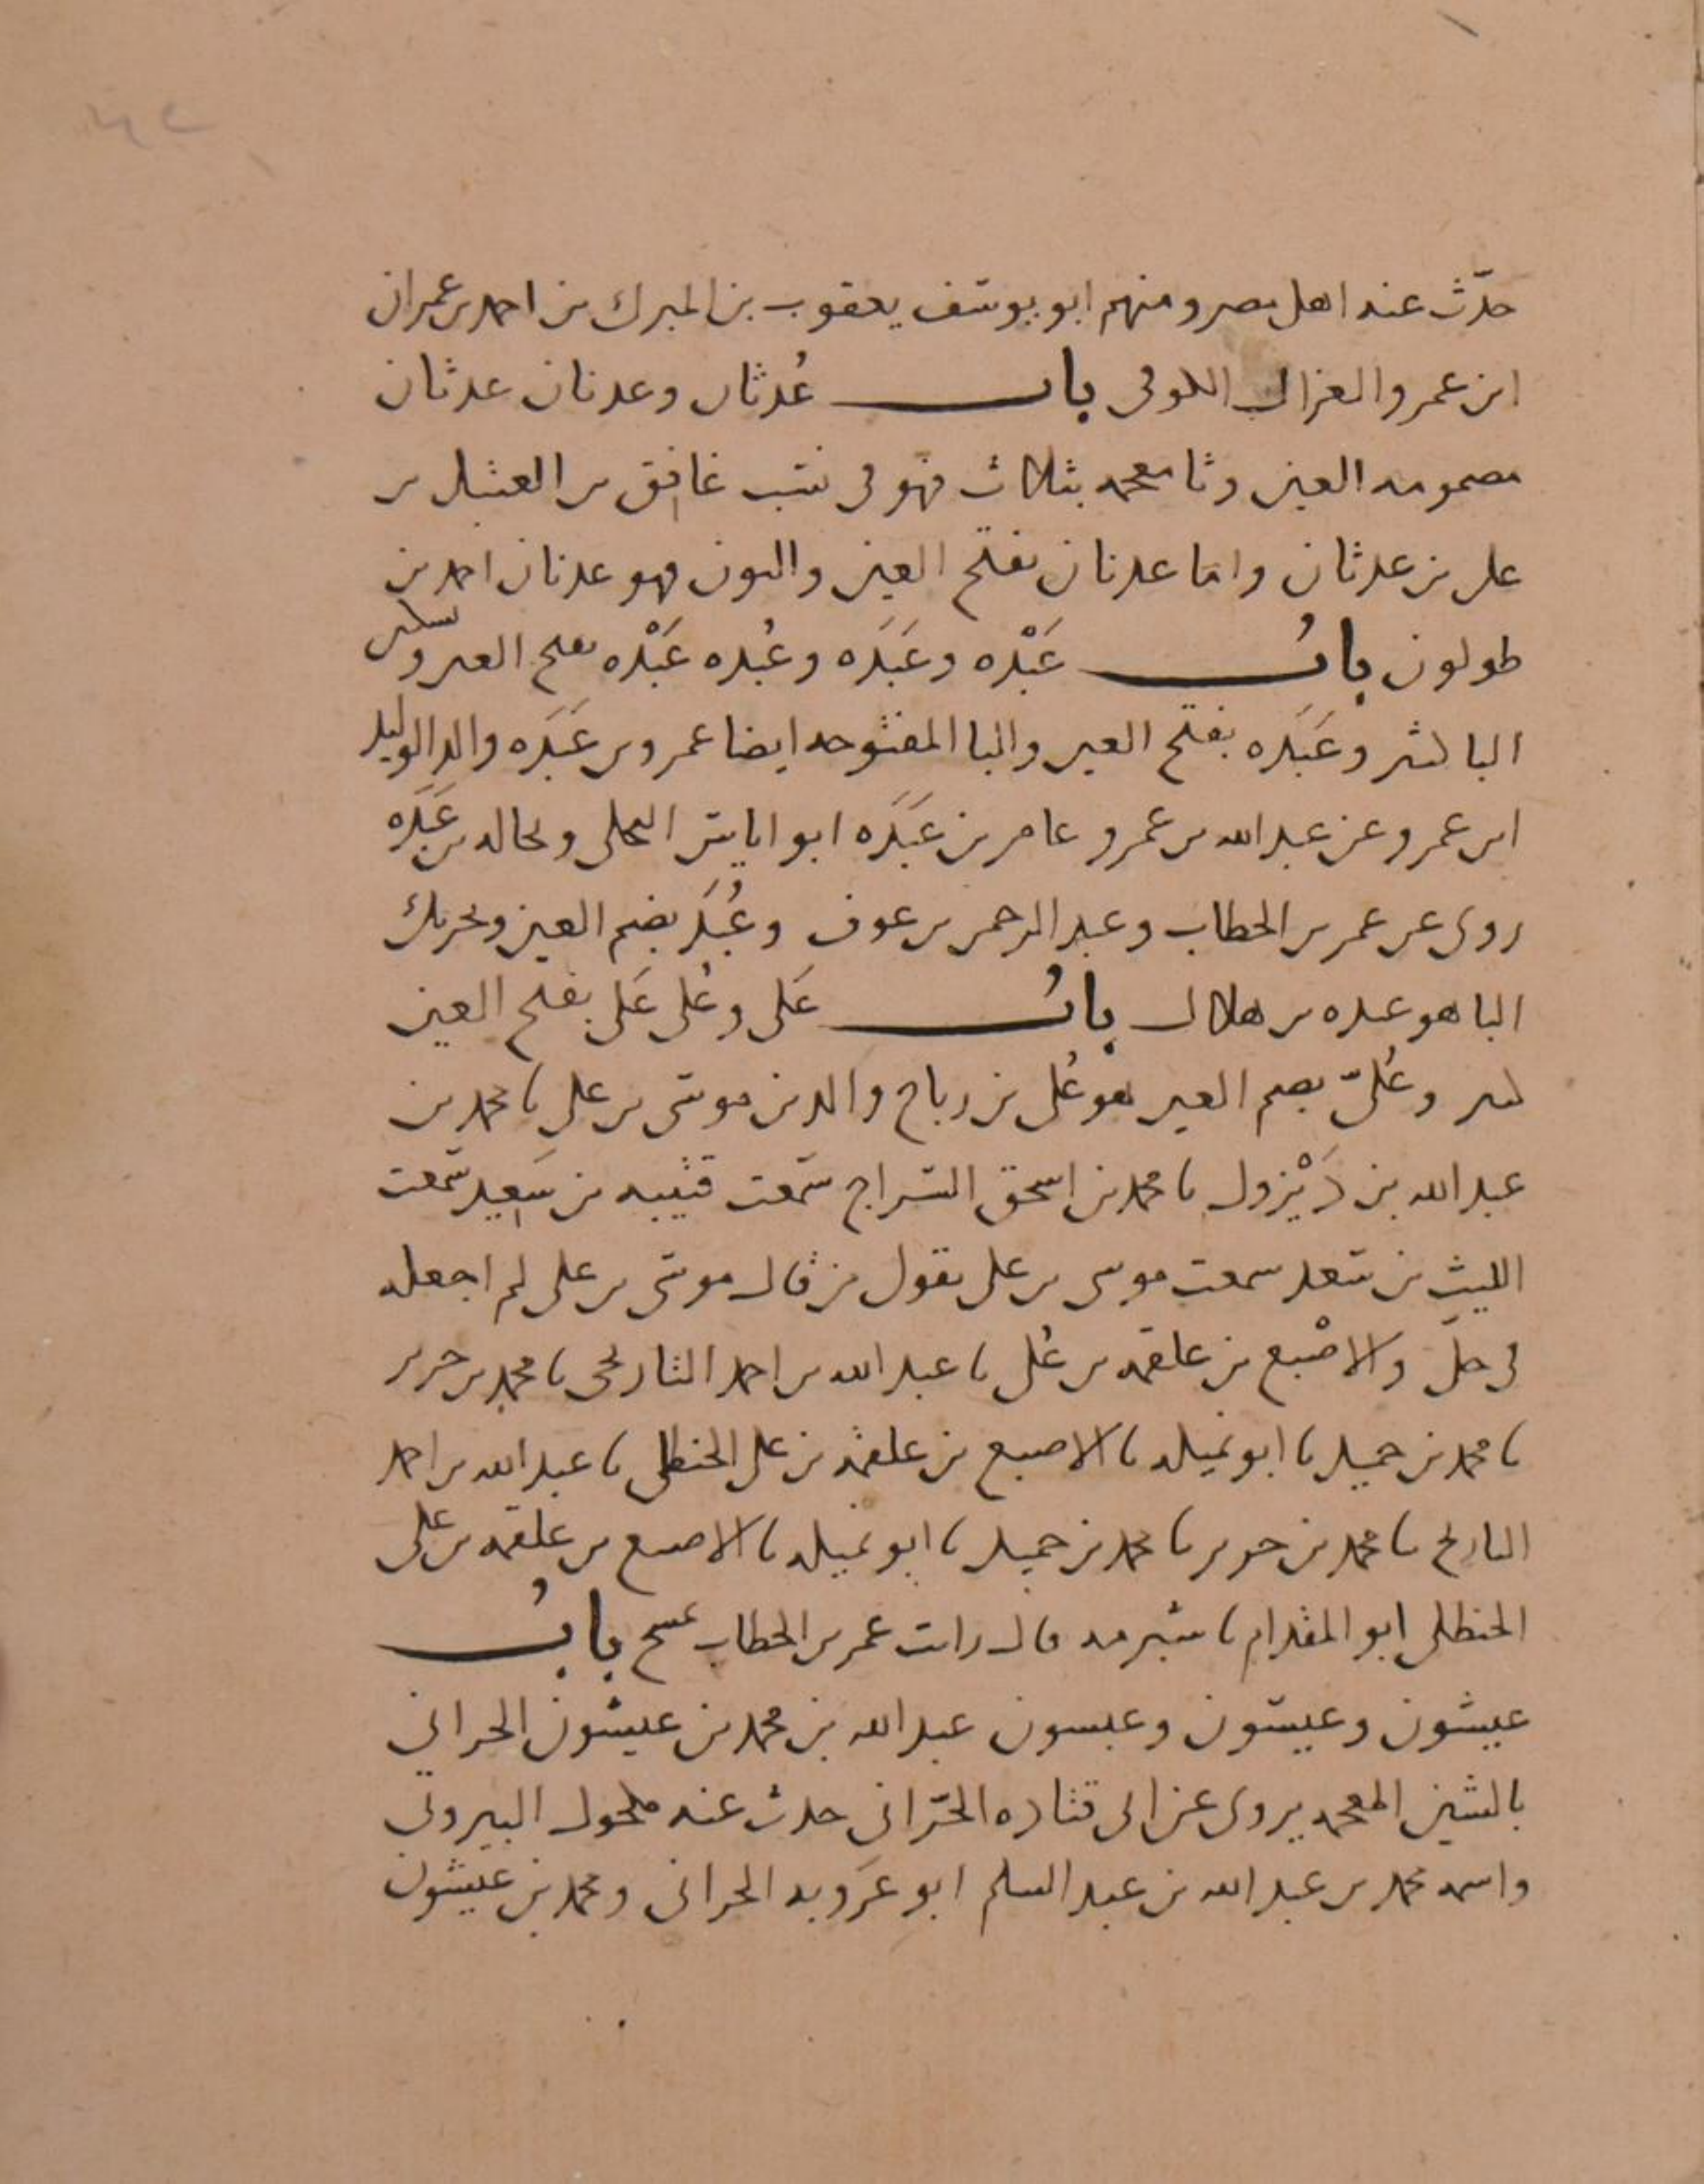 حدّث عنه اهل مصر ومنهم ابو يوسف يعقوب بن المبرك بن احمد بن عمران
ابن عمرو الغزال الكوفى باب عُدثان وعدنان عدثان
مضمومه العين وثا معجمه بثلاث فهو فى نسب غافق بن العتيك بن
على بن عدثان واما عدنان بفتح العين والنون فهو عدنان احمد بن
طولون بابُ عَبْده وعَبَده وعُبده عَبْده بفتح العين وسكون
البا كثير وعَبَده بفتح العين والبا المفتوحه ايضا عمرو بن عَبَده والد الوليد
ابن عمرو عن عبد الله بن عمرو عامر بن عَبَده ابو اياس البجلى وبجاله بن عَبَده
روى عن عمر بن الخطاب وعبد الرحمن بن عوف وعُبَد بضم العين وتحريك
البا هو عبده بن هلال بابُ عَلى وعُلى عَلى بفتح العين
كثير وعُلىّ بضم العين هو عُلى بن رباح والد بن موسى بن على نا محمد بن
عبد الله بن دَيْزول نا محمد بن اسحق السراج سمعت قتيبه بن سعيد سمعت
الليث بن سعد سمعت موسى بن على يقول من قال موسى بن على لم اجعله
فى حلّ والاصْبغ بن علقمه بن عُلى نا عبد الله بن احمد التاريخى نا محمد بن جرير
نا محمد بن حميد نا ابو تميله نا الاصبغ بن علقمه بن على الحنظلى نا عبد الله بن احمد
التاريخ نا محمد بن جرير نا محمد بن حميد نا ابو تميله نا الاصبغ بن علقمه بن على
الحنظلى ابو المقدام نا شبرمه قال رايت عمر بن الخطاب يمسح بابُ
عيشون وعيسون وعبسون عبد الله بن محمد بن عيشون الحرانى
بالشين المعجمه يروى عن ابى قتاده الحرّانى حدث عنه مكحول البيروتى
واسمه محمد بن عبد الله بن عبد السلم ابو عَروبه الحرانى ومحمد بن عيشون